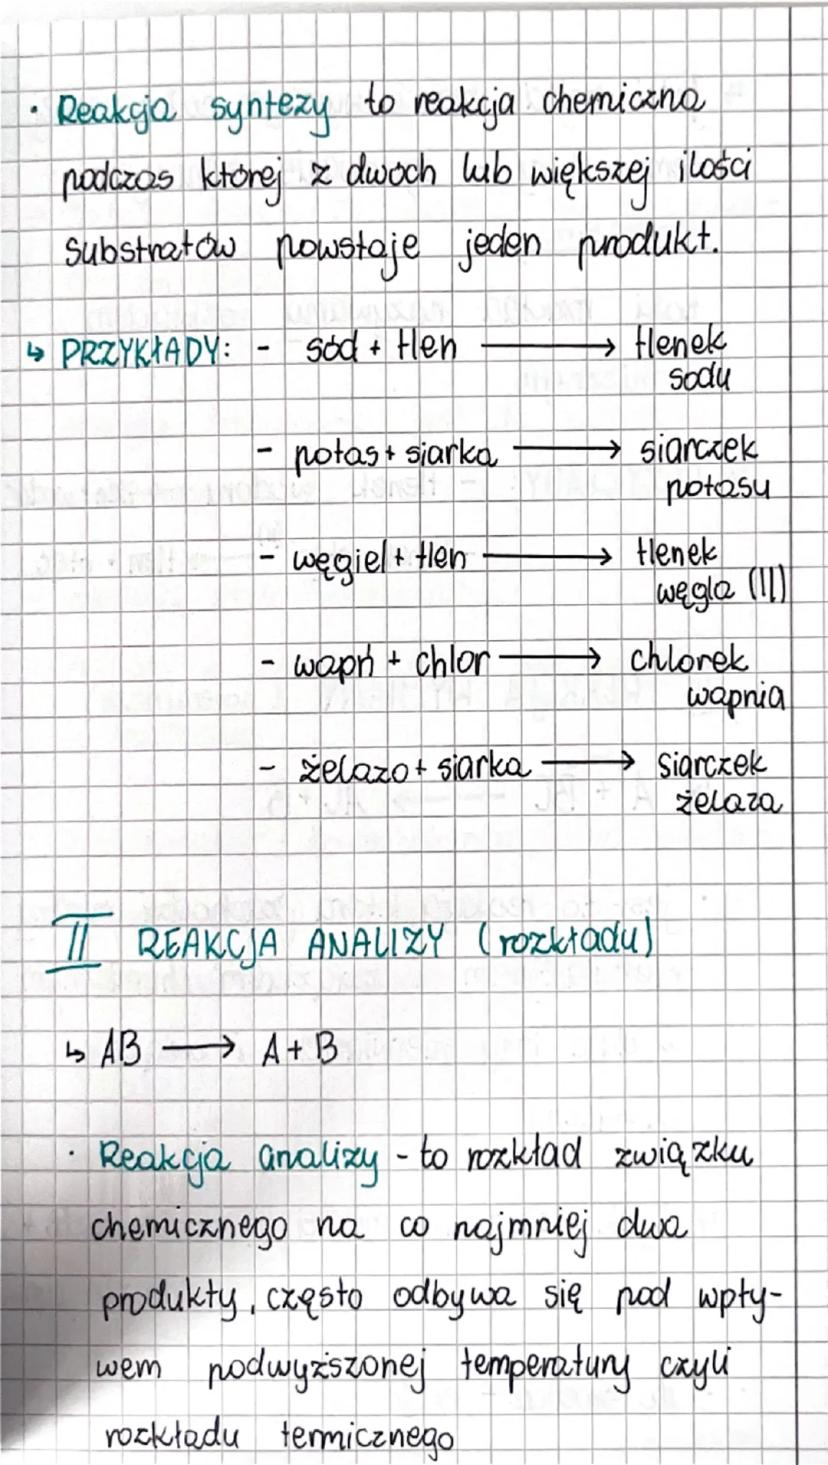 · Reakcja syntezy to reakcja chemiczna
podczas której z dwóch lub większej ilości
substratów powstaje jeden produkt.
↳ PRZYKŁADY: - sód + tlen ⟶ tlenek
sodu
- potas + siarka ⟶ siarczek
potasu
- węgiel + tlen ⟶ tlenek
węgla (II)
- wapń + chlor ⟶ chlorek
wapnia
- żelazo + siarka ⟶ siarczek
żelaza
II REAKCJA ANALIZY (rozkładu)
↳ AB ⟶ A + B
· Reakcja analizy - to rozkład związku
chemicznego na co najmniej dwa
produkty, często odbywa się pod wpły-
wem podwyższonej temperatury czyli
rozkładu termicznego